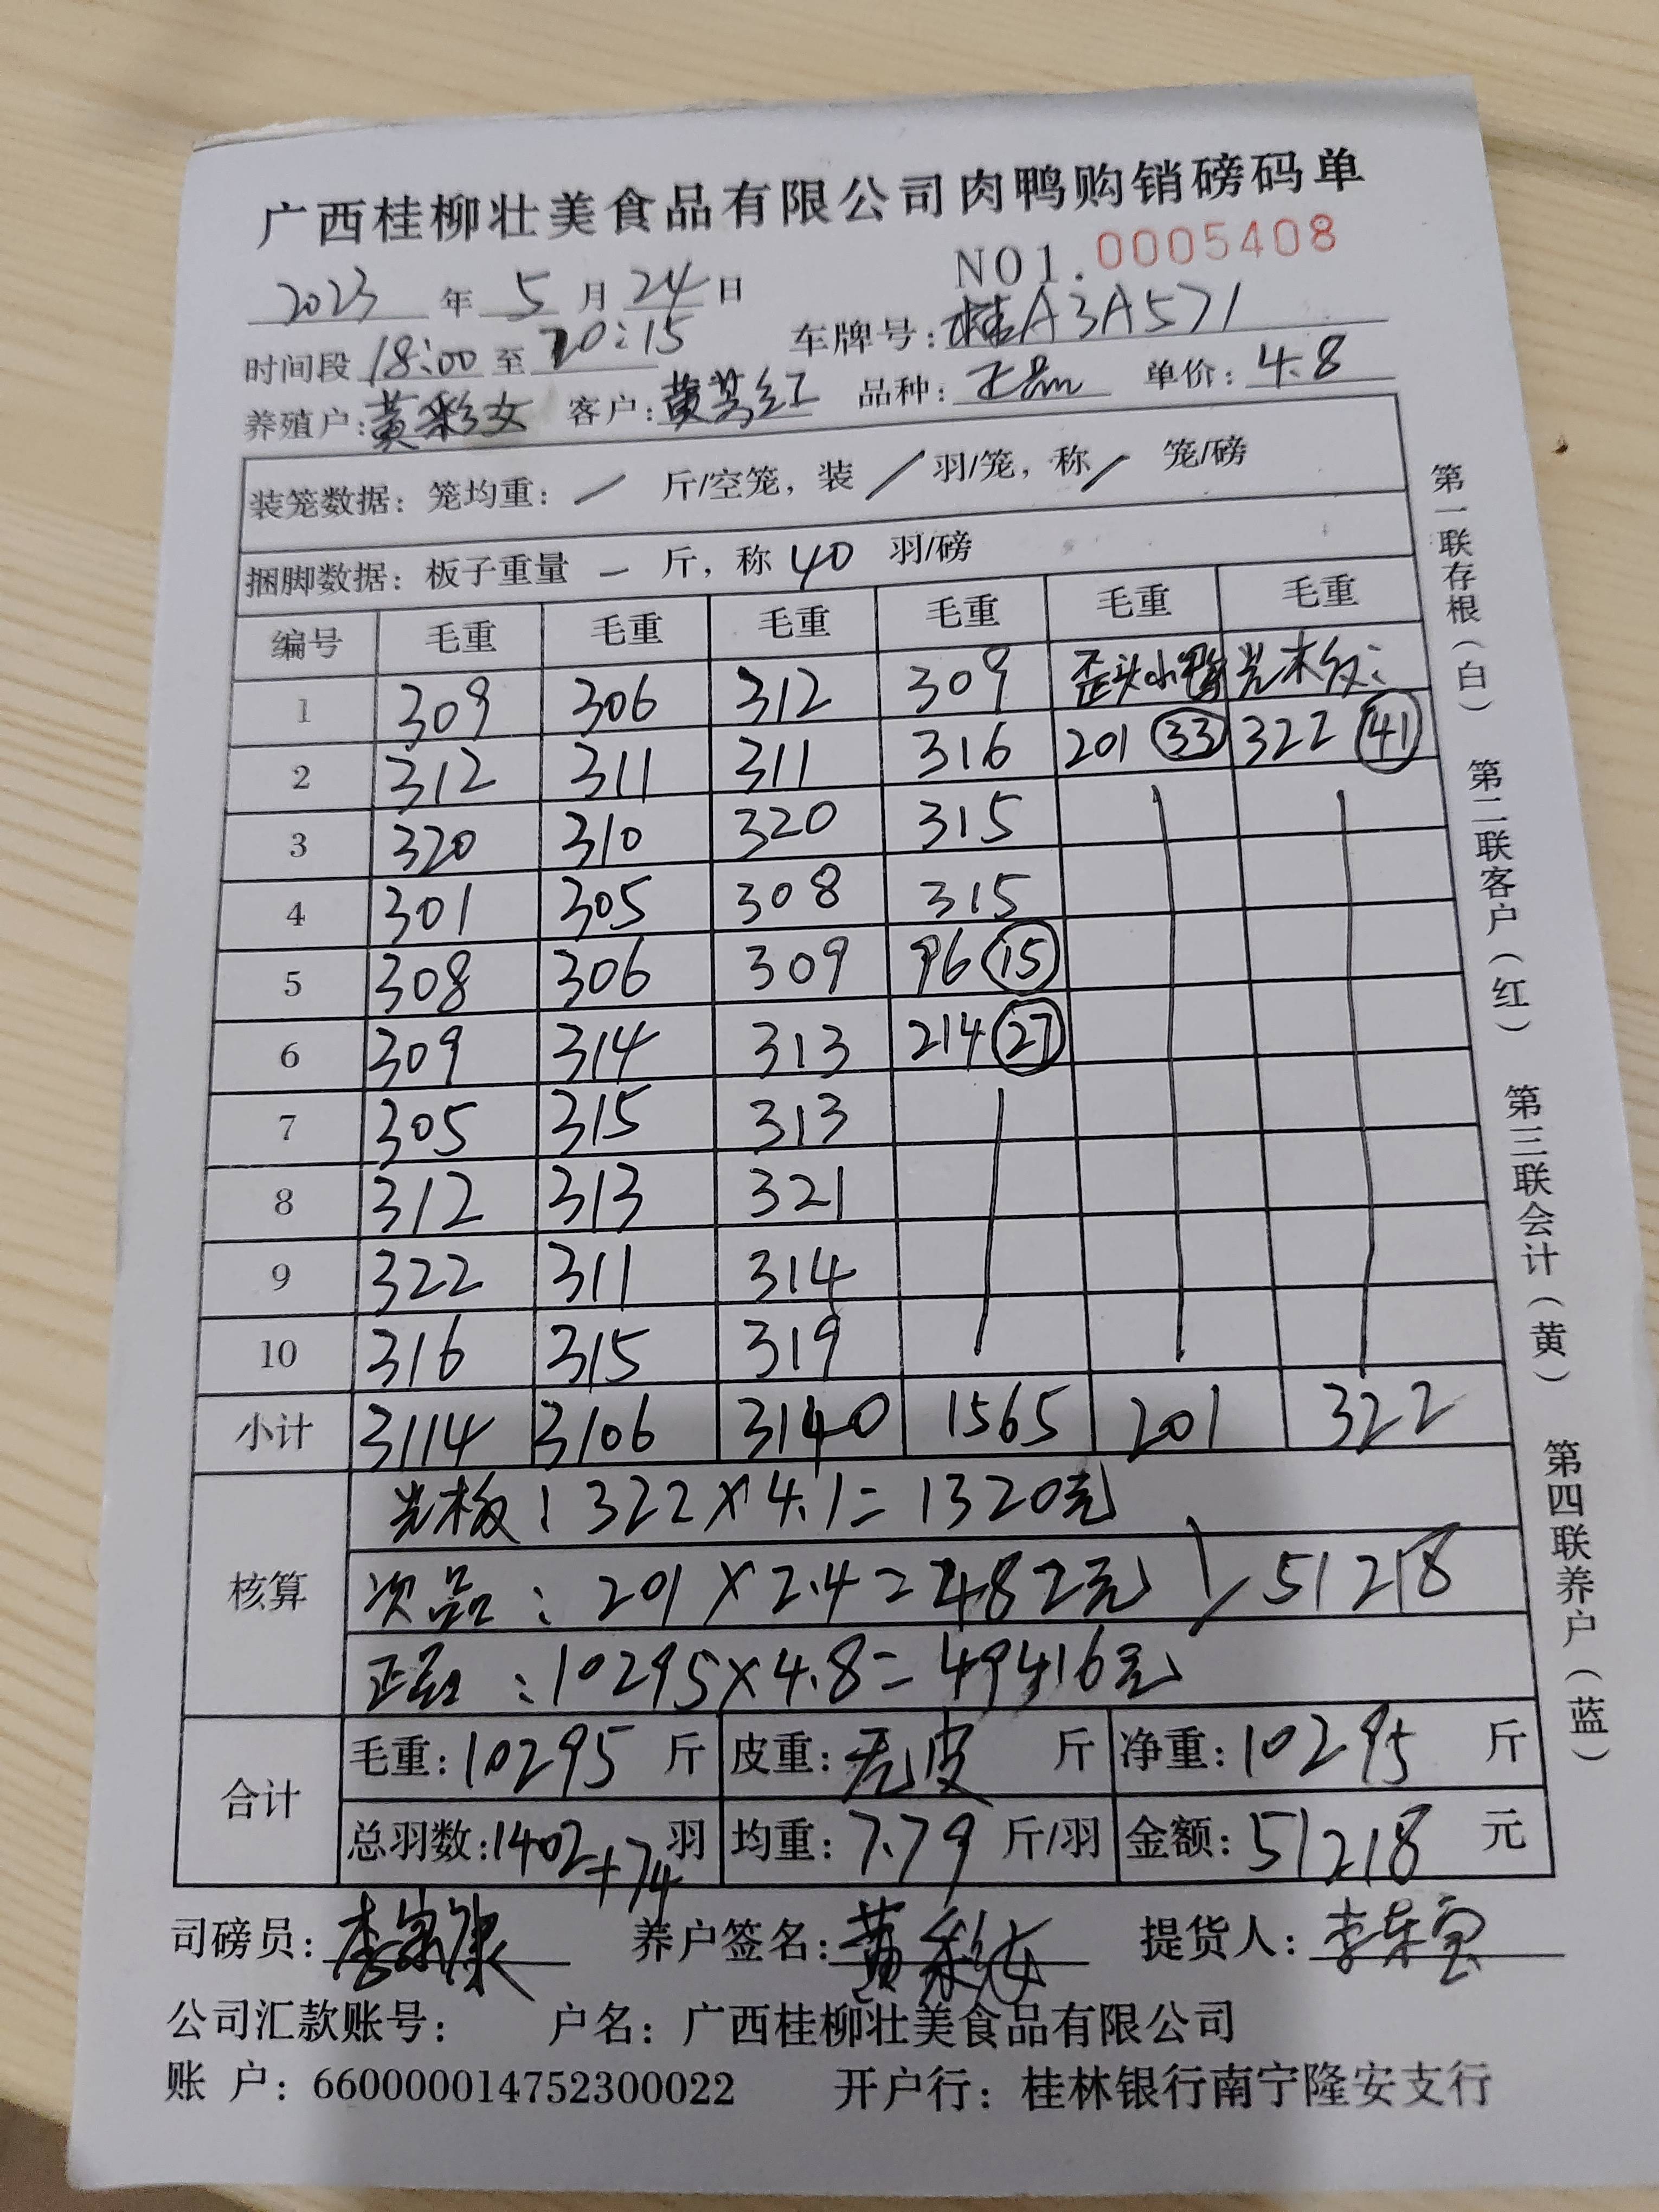 广西桂柳壮美食品有限公司肉鸭购销磅码单
NO1.0005408
2023 年 5 月 24 日
时间段 18:00 至 20:15 车牌号: 桂A3A571
养殖户: 黄彩女 客户: 黄 红 品种: 正品 单价: 4.8
装笼数据: 笼均重: / 斤/空笼, 装 / 羽/笼, 称 / 笼/磅
捆脚数据: 板子重量 — 斤, 称 40 羽/磅
编号 毛重 毛重 毛重 毛重 毛重 毛重
1 309 306 312 309 歪头小鸭 光板:
2 312 311 311 316 201 33 322 41
3 320 310 320 315
4 301 305 308 315
5 308 306 309 96 15
6 309 314 313 214 27
7 305 315 313
8 312 313 321
9 322 311 314
10 316 315 319
小计 3114 3106 3140 1565 201 322
核算
光板: 322×4.1=1320元
次品: 201×2.4=482元 } 51218
正品: 10295×4.8=49416元
合计
毛重: 10295 斤 皮重: 无皮 斤 净重: 10295 斤
总羽数: 1402+74 羽 均重: 7.79 斤/羽 金额: 51218 元
司磅员: 李 康 养户签名: 黄彩女 提货人: 李 宝
公司汇款账号: 户名: 广西桂柳壮美食品有限公司
账 户: 660000014752300022 开户行: 桂林银行南宁隆安支行
第一联存根(白) 第二联客户(红) 第三联会计(黄) 第四联养户(蓝)